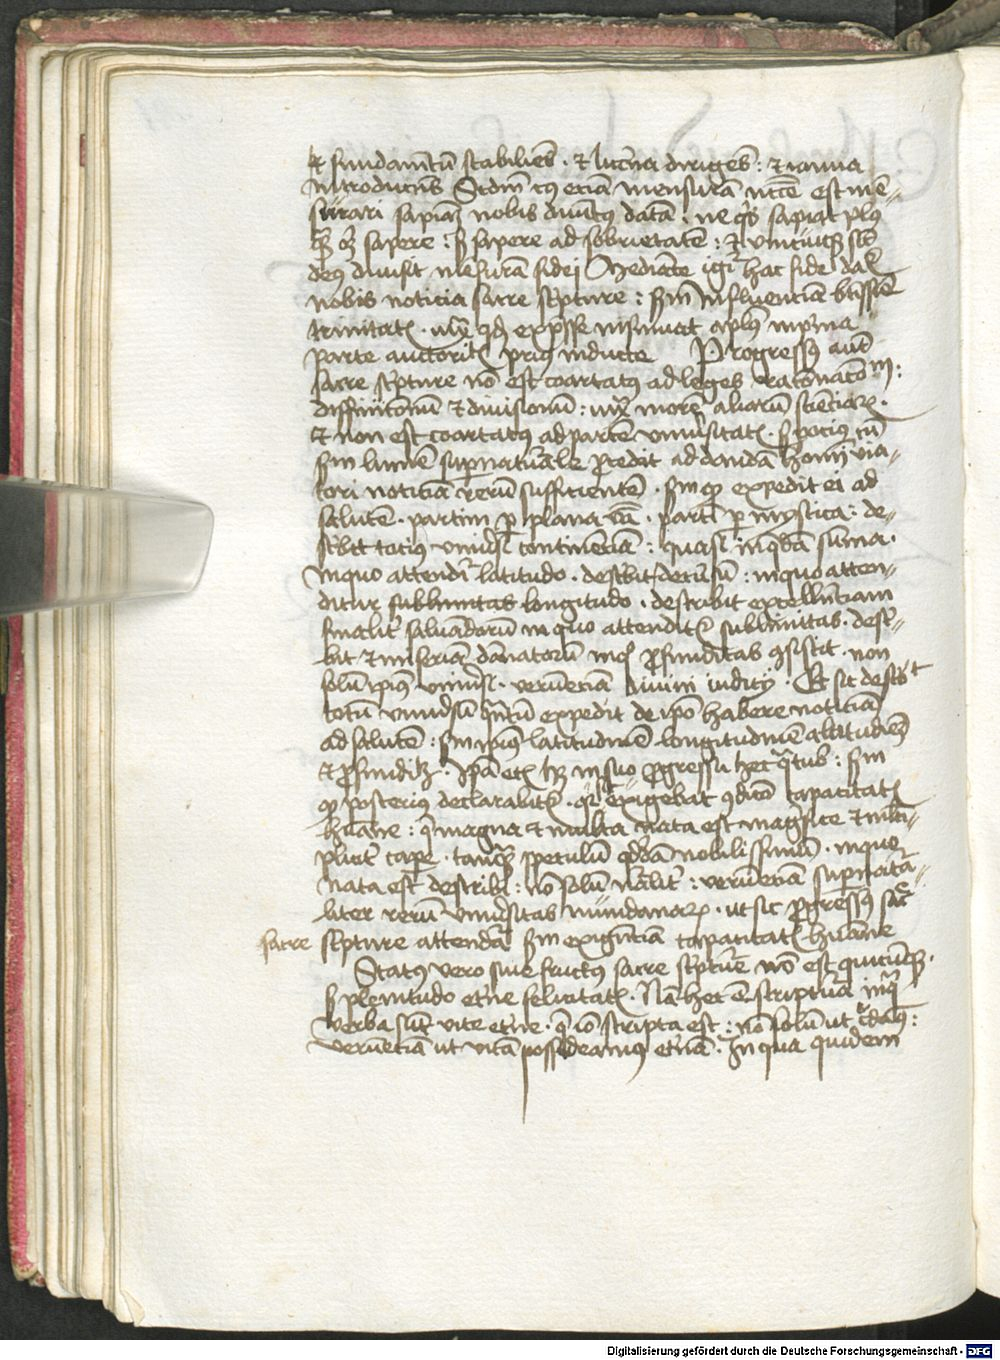 et fundamentū stabiliēs · et lucerna dirigēs : et ianua
introducēs Scdm cuius etiā mensurā necē est mē-
surari sapiam nobis divinitus datā · ne quis sapiat plus
quam oportet sapere : sed sapere ad sobrietatē : et unicuique sicut
deus divisit mēsurā fidei Mediāte igitur hac fide datur
nobis noticia sacre scripture : scdm influenciā btissime
trinitatis · iuxta quod expresse insinuat aplus in prima
parte auctoritatis prius inducte Progressus autē
sacre scripture nō est coartatus ad leges racōnaconum :
diffinitionū et divisionū : iuxta morē aliarū scienciarum ·
et non est coartatus ad partē universitatis · sed pocius cū
scdm lumē supernaturale procedit ad dandā homini via-
tori noticiā rerū sufficientē · scdm quod expedit ei ad
salutē · partim per plana verba · partim per mystica : de-
scribit tocius universi continenciā : quasi in quadā summa ·
in quo attenditur latitudo · describit decursū : in quo atten-
ditur sublimitas longitudo · describit excellenciam
finaliter salvādorū in quo attenditur sublimitas · descri-
bit et miseriā dānatorū in quo profunditas consistit · non
solū ipsius universi · verumeciā divini iudicij · Et sic describit
totū universū quantū expedit de ipso habere noticiā
ad salutē : scdm ipsius latitudinē longitudinē altitudinē
et profunditatem · Ipsa eciam habet in suo progressu hec quatuor : scdm
quod posterius declarabitur · quia exigebat condicio capacitatis
humane : que magna et multa nata est magnifice et multi-
pliciter capere · tamquam speculū quoddā nobilissimū · in quo
nata est describi : nō solū naturaliter : verumeciā supernatura-
liter rerū universitas mundanarum · ut sic progressus sacre
sacre scripture attendatur scdm exigenciā capacitatis humane
Status vero sive fructus sacre scripture nō est quicumque ·
sed plenitudo eterne felicitatis · Nam hec est scriptura in qua
verba sunt vite eterne · que ideo scripta est : nō solū ut credamus :
verumeciā ut vitā possideamus eternā · In qua quidem